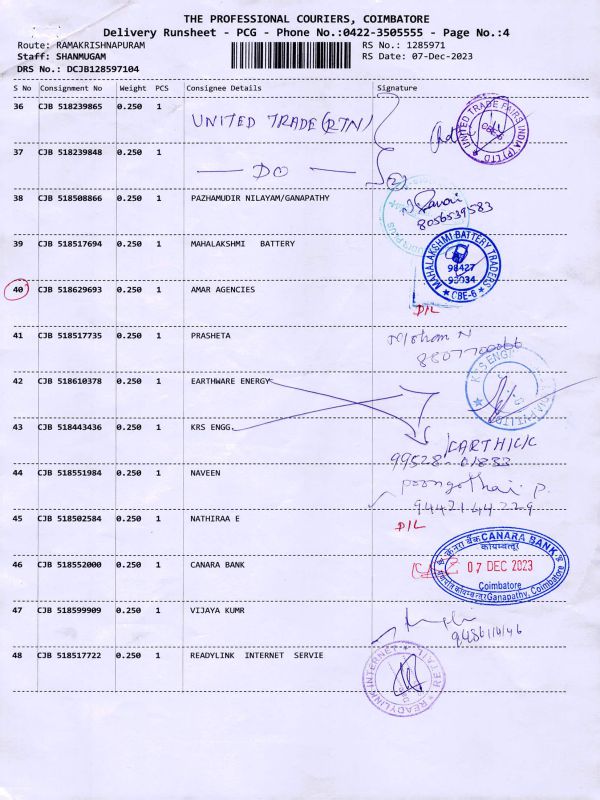 THE PROFESSIONAL COURIERS, COIMBATORE
Delivery Runsheet - PCG - Phone No.:0422-3505555 - Page No.:4
Route: RAMAKRISHNAPURAM RS No.: 1285971
Staff: SHANMUGAM RS Date: 07-Dec-2023
DRS No.: DCJB128597104
S No Consignment No Weight PCS Consignee Details Signature
36 CJB 518239865 0.250 1 UNITED TRADE (RTN)
UNITED TRADE FAIRS INDIA (P) LTD CBE-6
37 CJB 518239848 0.250 1 — DO — (2)
38 CJB 518508866 0.250 1 PAZHAMUDIR NILAYAM/GANAPATHY
8056539583
39 CJB 518517694 0.250 1 MAHALAKSHMI BATTERY
MAHALAKSHMI BATTERY TRADERS
98427
93034
CBE-6
40 CJB 518629693 0.250 1 AMAR AGENCIES D/L
41 CJB 518517735 0.250 1 PRASHETA Mohan N
8807700066
42 CJB 518610378 0.250 1 EARTHWARE ENERGY
KRS ENGG
43 CJB 518443436 0.250 1 KRS ENGG. KARTHICK
99528 01833
44 CJB 518551984 0.250 1 NAVEEN Poongothai p.
9442144229
45 CJB 518502584 0.250 1 NATHIRAA E D/L
46 CJB 518552000 0.250 1 CANARA BANK
केनरा बैंक CANARA BANK
कोयम्बत्तूर
07 DEC 2023
Coimbatore
Ganapathy, Coimbatore
47 CJB 518599909 0.250 1 VIJAYA KUMR
48 CJB 518517722 0.250 1 READYLINK INTERNET SERVIE
READYLINK INTERNET RETAIL